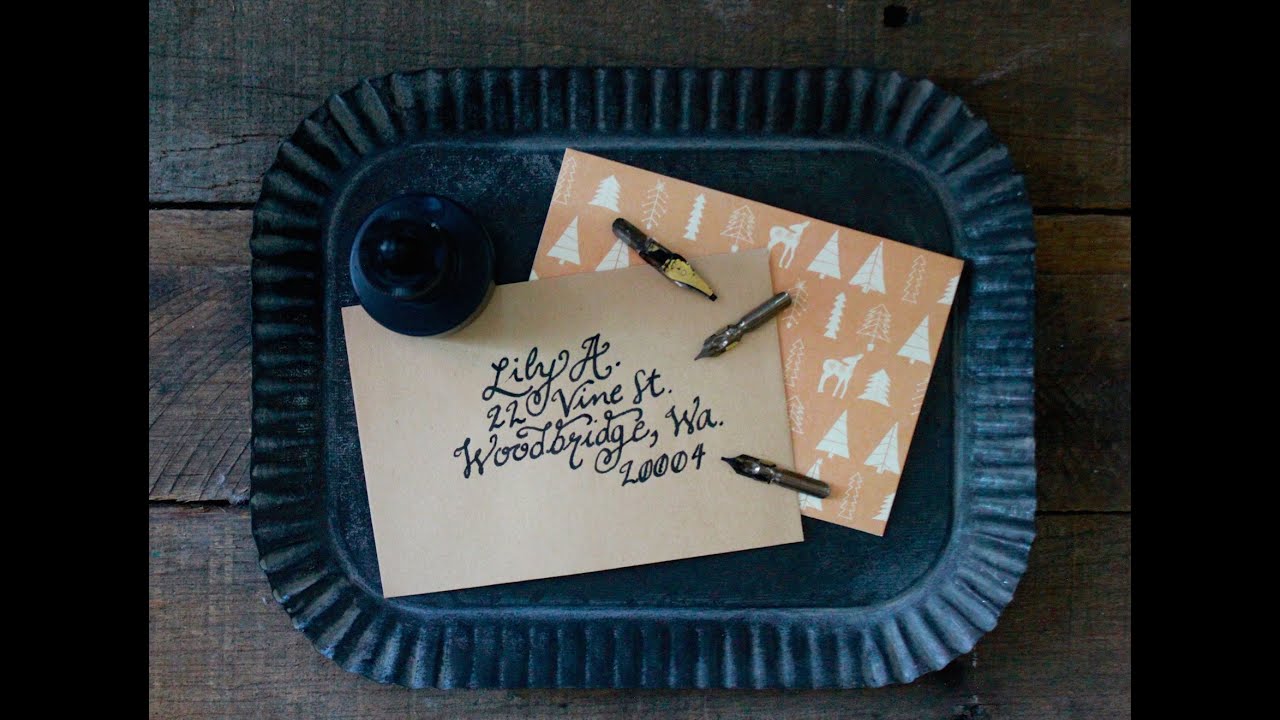 Lily A.
22 Vine St.
Woodbridge, Wa.
20004